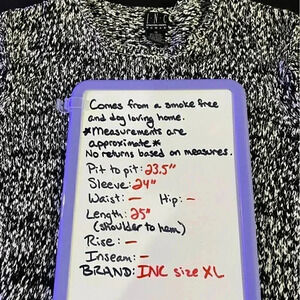 INC
Comes from a smoke free
and dog loving home.
*Measurements are
approximate*
No returns based on measures.
Pit to pit: 23.5"
Sleeve: 24"
Waist: - Hip: -
Length: 25"
(shoulder to hem)
Rise: -
Inseam: -
BRAND: INC size XL